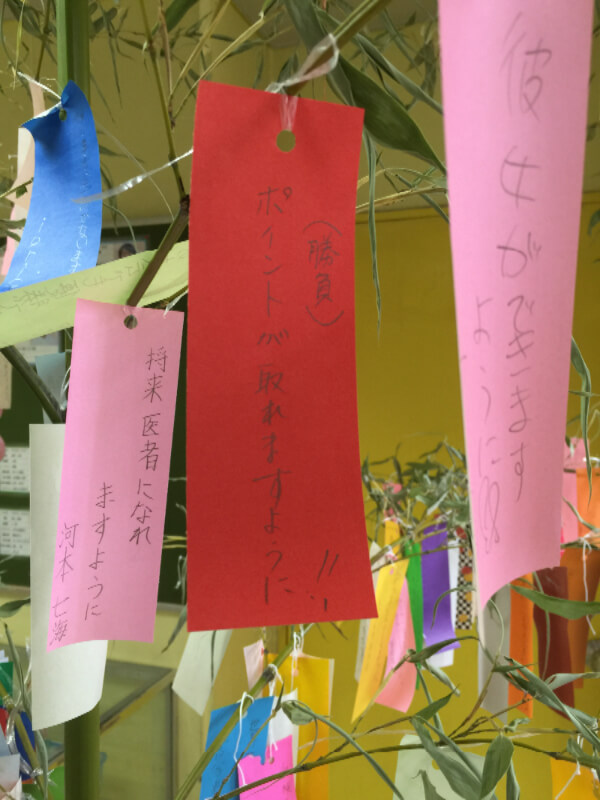 彼女ができます
ように
(勝負)
ポイントが取れますように!!
将来医者になれ
ますように
河本 七海